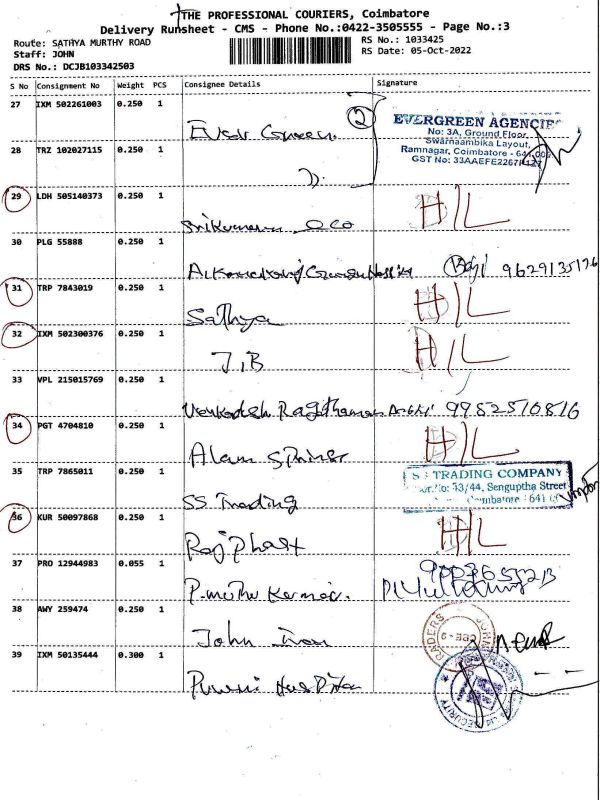 THE PROFESSIONAL COURIERS, Coimbatore
Delivery Runsheet - CMS - Phone No.:0422-3505555 - Page No.:3
Route: SATHYA MURTHY ROAD
RS No.: 1033425
Staff: JOHN
RS Date: 05-Oct-2022
DRS No.: DCJB103342503
S No Consignment No Weight PCS Consignee Details Signature
27 IXM 502261003 0.250 1
2
EVERGREEN AGENCIES
No: 3A, Ground Floor,
Swarnaambika Layout,
Ramnagar, Coimbatore - 641 009
28 TRZ 102027115 0.250 1
29 LDH 505140373 0.250 1
H/L
30 PLG 55888 0.250 1
31 TRP 7843019 0.250 1
Sathya H/L
32 IXM 502300376 0.250 1
J.B H/L
33 VPL 215015769 0.250 1
Venkatesh
34 PGT 4704810 0.250 1
Alam H/L
35 TRP 7865011 0.250 1
SS Trading
TRADING COMPANY
33/44, Senguptha Street
Coimbatore - 641
36 KUR 50097868 0.250 1
H/L
37 PRO 12944983 0.055 1
P. Muthu Kumar.
38 AWY 259474 0.250 1
John
39 IXM 50135444 0.300 1
SECURITY